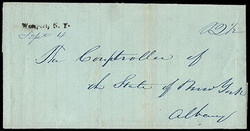 Westport, N.Y.
Sept 4
The Comptroller of
the State of New York
Albany